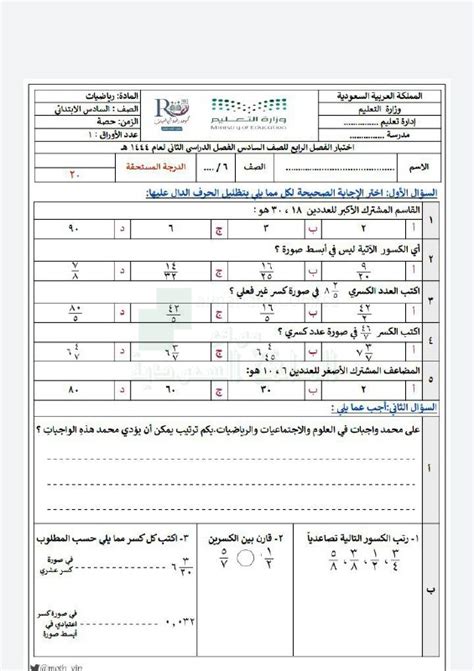 المملكة العربية السعودية
وزارة التعليم
إدارة تعليم ...............
مدرسة ...............
وزارة التعليم
Ministry of Education
المادة: رياضيات
الصف : السادس الابتدائي
الزمن: حصة
عدد الأوراق : ١
اختبار الفصل الرابع للصف السادس الفصل الدراسي الثاني لعام ١٤٤٤ هـ
الاسم
الصف
٦/ ....
الدرجة المستحقة
٢٠
السؤال الأول: اختر الإجابة الصحيحة لكل مما يلي بتظليل الحرف الدال عليها:
١ القاسم المشترك الأكبر للعددين ١٨ ، ٣٠ هو :
أ ٢ ب ٣ ج ٦ د ٩٠
٢ أي الكسور الآتية ليس في أبسط صورة ؟
أ ٩/٢٠ ب ١٦/٢٥ ج ١٤/٣٢ د ٧/٨
٣ اكتب العدد الكسري ٨ ٢/٥ في صورة كسر غير فعلي ؟
أ ٤٢/٢ ب ١٦/٥ ج ٤٢/٥ د ٨٠/٥
٤ اكتب الكسر ٤٦/٧ في صورة عدد كسري ؟
أ ٧ ٣/٧ ب ٦ ٤/٤٥ ج ٦ ٣/٧ د ٦ ٤/٧
٥ المضاعف المشترك الأصغر للعددين ٦ ، ١٠ هو:
أ ٢ ب ٣٠ ج ٦٠ د ٨٠
السؤال الثاني:أجب عما يلي :
أ على محمد واجبات في العلوم والاجتماعيات والرياضيات.بكم ترتيب يمكن أن يؤدي محمد هذه الواجبات ؟
ب
١- رتب الكسور التالية تصاعدياً
٣/٤ ، ١/٢ ، ٣/٨ ، ٥/٨
٢- قارن بين الكسرين
١/٢ ○ ٥/٧
٣- اكتب كل كسر مما يلي حسب المطلوب
٦ ٣/٢٠ ............... في صورة كسر عشري
٠,٠٣٢ ............... في صورة كسر اعتيادي في أبسط صورة
@math_vip